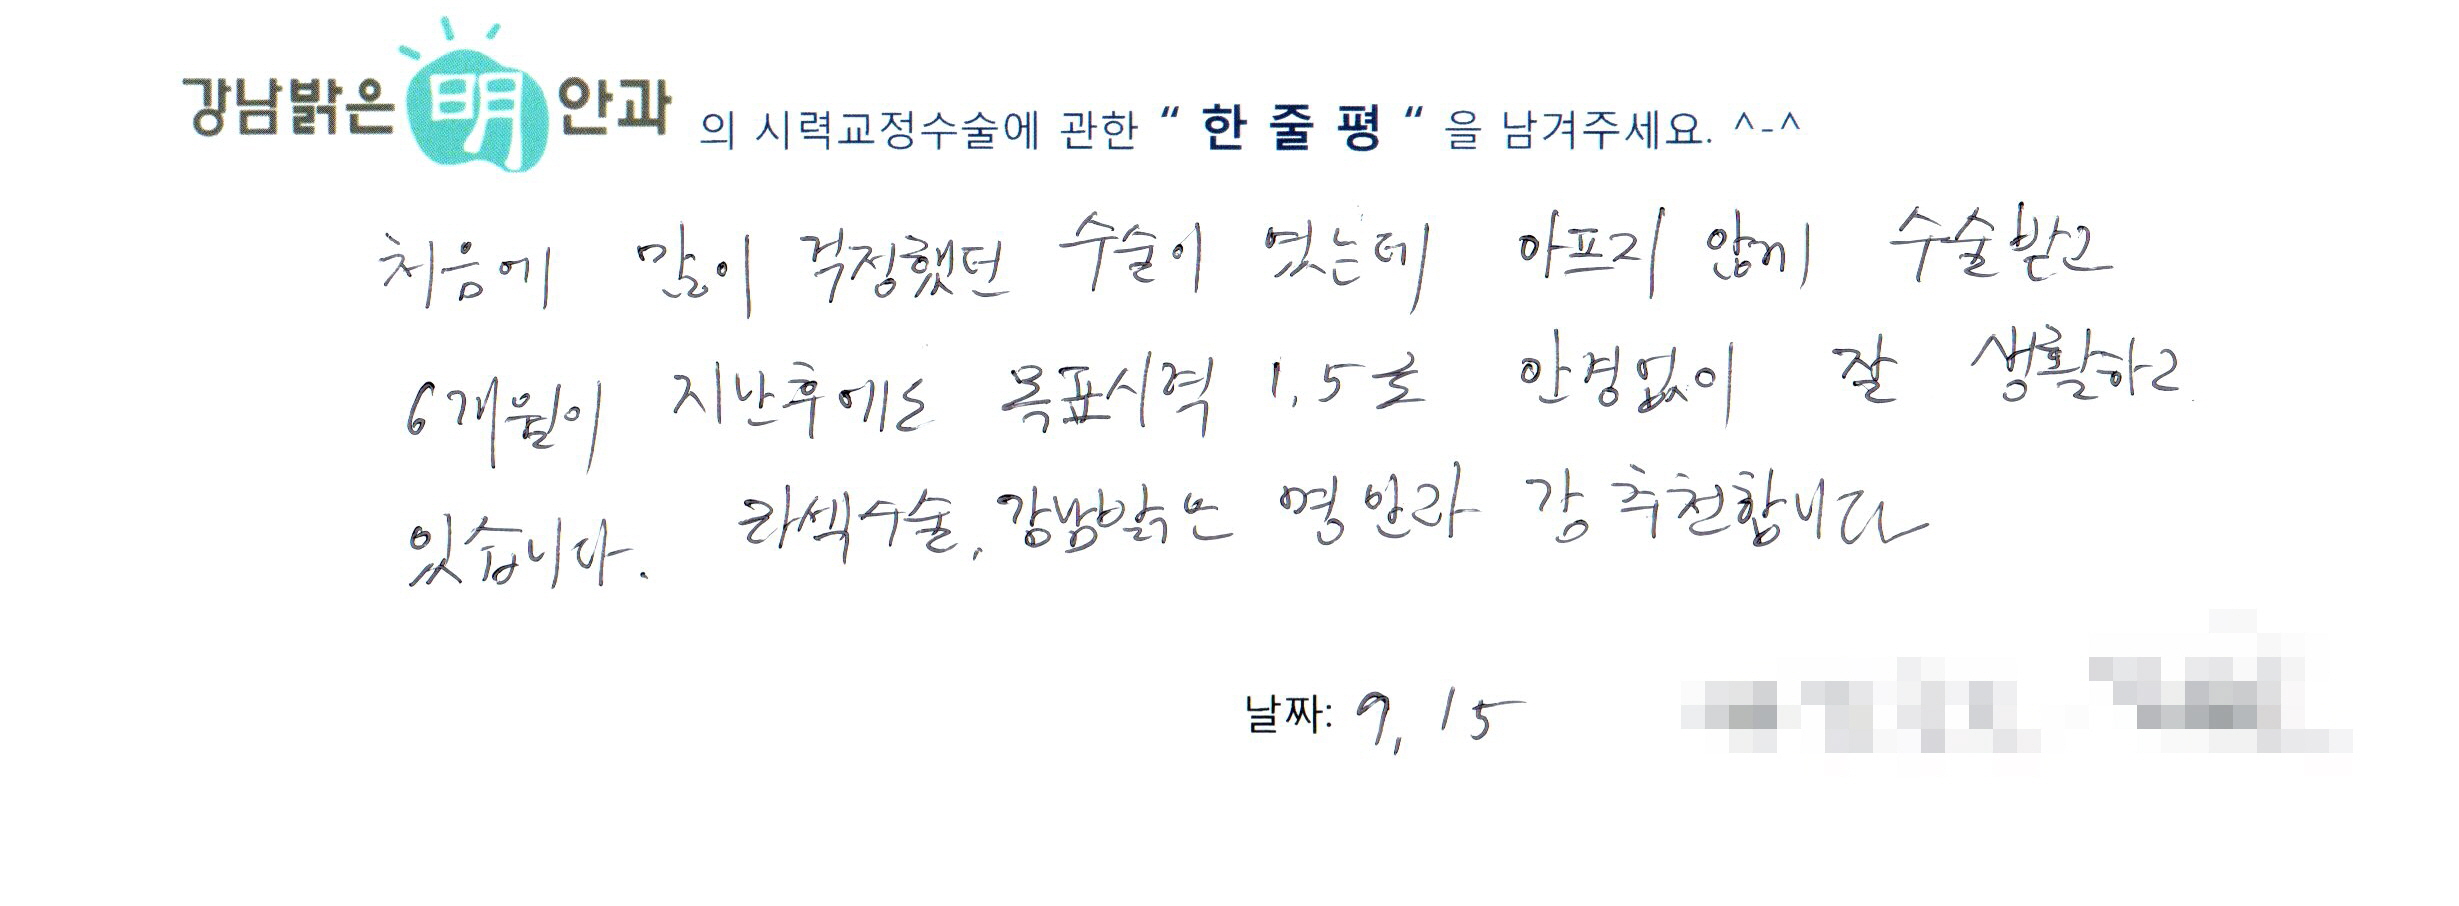 강남밝은明안과 의 시력교정수술에 관한 “ 한 줄 평 “ 을 남겨주세요. ^-^
처음에 많이 걱정했던 수술이 였는데 아프지 않게 수술받고
6개월이 지난후에도 목표시력 1.5로 안경없이 잘 생활하고
있습니다. 라섹수술, 강남밝은 명안과 강 추천합니다
날짜: 9, 15